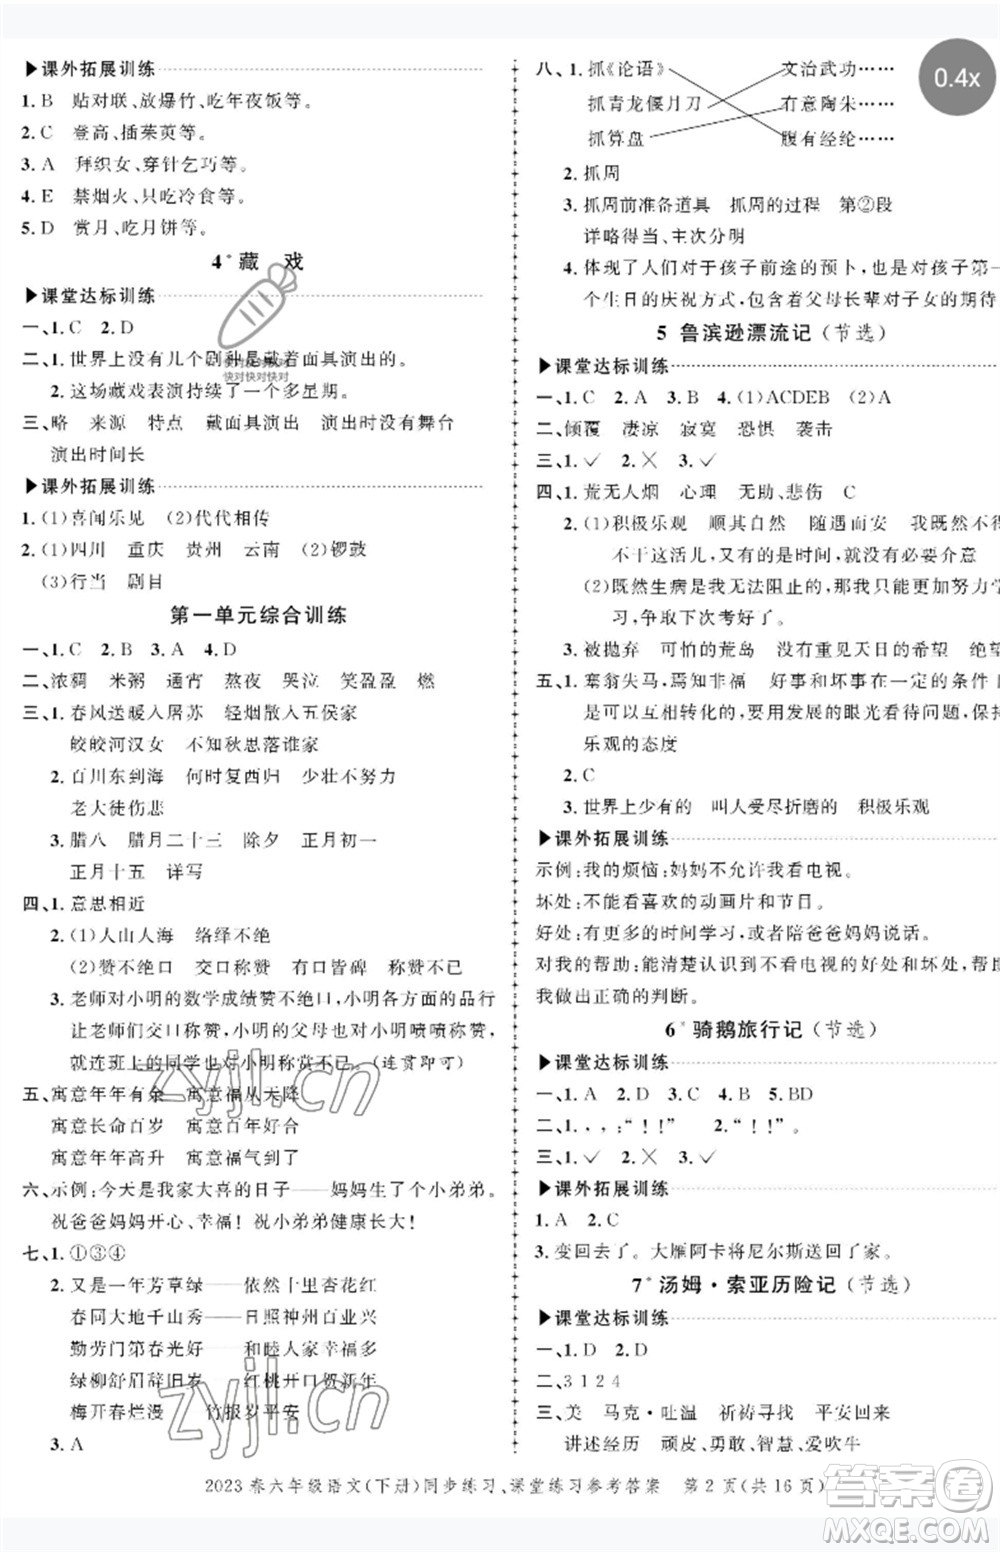 ▶课外拓展训练
1. B　贴对联、放爆竹、吃年夜饭等。
2. C　登高、插茱萸等。
3. A　拜织女、穿针乞巧等。
4. E　禁烟火、只吃冷食等。
5. D　赏月、吃月饼等。
4* 藏　戏
▶课堂达标训练
一、1. C　2. D
二、1. 世界上没有几个剧种是戴着面具演出的。
2. 这场藏戏表演持续了好多星期。
三、略　来源　特点　戴面具演出　演出时没有舞台
演出时间长
▶课外拓展训练
1. (1)喜闻乐见　(2)代代相传
2. (1)四川　重庆　贵州　云南　(2)锣鼓
(3)行当　剧目
第一单元综合训练
一、1. C　2. B　3. A　4. D
二、浓稠　米粥　通宵　熬夜　哭泣　笑盈盈　燃
三、1. 春风送暖入屠苏　轻烟散入五侯家
皎皎河汉女　不知秋思落谁家
2. 百川东到海　何时复西归　少壮不努力
老大徒伤悲
3. 腊八　腊月二十三　除夕　正月初一
正月十五　详写
四、1. 意思相近
2. (1)人山人海　络绎不绝
(2)赞不绝口　交口称赞　有口皆碑　称赞不已
3. 老师对小明的数学成绩赞不绝口,小明各方面的品行
让老师们交口称赞,小明的父母也对小明啧啧称赞,
就连班上的同学也对小明称赏不已。(连贯即可)
五、寓意年年有余　寓意福从天降
寓意长命百岁　寓意百年好合
寓意年年高升　寓意福气到了
六、示例:今天是我家大喜的日子——妈妈生了个小弟弟。
祝爸爸妈妈开心、幸福! 祝小弟弟健康长大!
七、1. ①③④
2. 又是一年芳草绿——依然十里杏花红
春回大地千山秀——日照神州百业兴
勤劳门第春光好——和睦人家幸福多
绿柳舒眉辞旧岁——红桃开口贺新年
梅开春烂漫——竹报岁平安
3. A
八、1. 抓《论语》　文治武功……
抓青龙偃月刀　有意陶朱……
抓算盘　腹有经纶……
2. 抓周
3. 抓周前准备道具　抓周的过程　第②段
详略得当、主次分明
4. 体现了人们对于孩子前途的预卜,也是对孩子第一
个生日的庆祝方式,包含着父母长辈对子女的期待
5　鲁滨逊漂流记(节选)
▶课堂达标训练
一、1. C　2. A　3. B　4. (1)ACDEB　(2)A
二、倾覆　凄凉　寂寞　恐惧　袭击
三、1. ✓　2. ×　3. ✓
四、1. 荒无人烟　心理　无助、悲伤　C
2. (1)积极乐观　顺其自然　随遇而安　我既然
不干这活儿,可有的是时间,就没有必要介意
(2)既然生病是我无法阻止的,那我就应该努力学
习,争取下次考好了。
3. 被抛弃　可怕的荒岛　没有重见天日的希望　绝望
五、1. 塞翁失马,焉知非福　好事和坏事在一定的条件
是可以转化的,要用发展的眼光看待问题,保持
乐观的态度
2. C
3. 世界上少有的　叫人受尽折磨的　积极乐观
▶课外拓展训练
示例:我的烦恼:妈妈不允许我看电视。
坏处:不能看喜欢的动画片和节目。
好处:有更多的时间学习,或者陪爸爸妈妈说话。
对我的帮助:能清楚认识到不看电视的好处和坏处,
我做出正确的判断。
6* 骑鹅旅行记(节选)
▶课堂达标训练
一、1. A　2. D　3. C　4. B　5. BD
二、1. , , :“! !”　2. :“! !”。
三、1. ✓　2. ✓　3. ✓
▶课外拓展训练
1. A　2. C
3. 变回去了。大雁阿卡将尼尔斯送回了家。
7* 汤姆·索亚历险记(节选)
▶课堂达标训练
一、1. D　2. D
二、3 1 2 4
三、美　马克·吐温　祈祷寻找　平安回来
讲述经历　顽皮、勇敢、智慧、爱吹牛
2023春六年级语文(下册)同步练习、课堂练习参考答案　第2页(共16页)
0.4x
快对快对快对
快对快对快对
zyjl.cn
zyjl.cn
答案圈
MXQE.COM